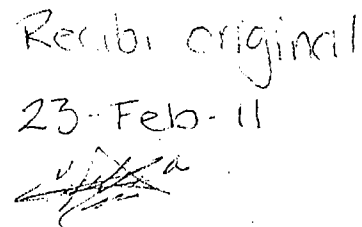 Recibi original
23-Feb-11